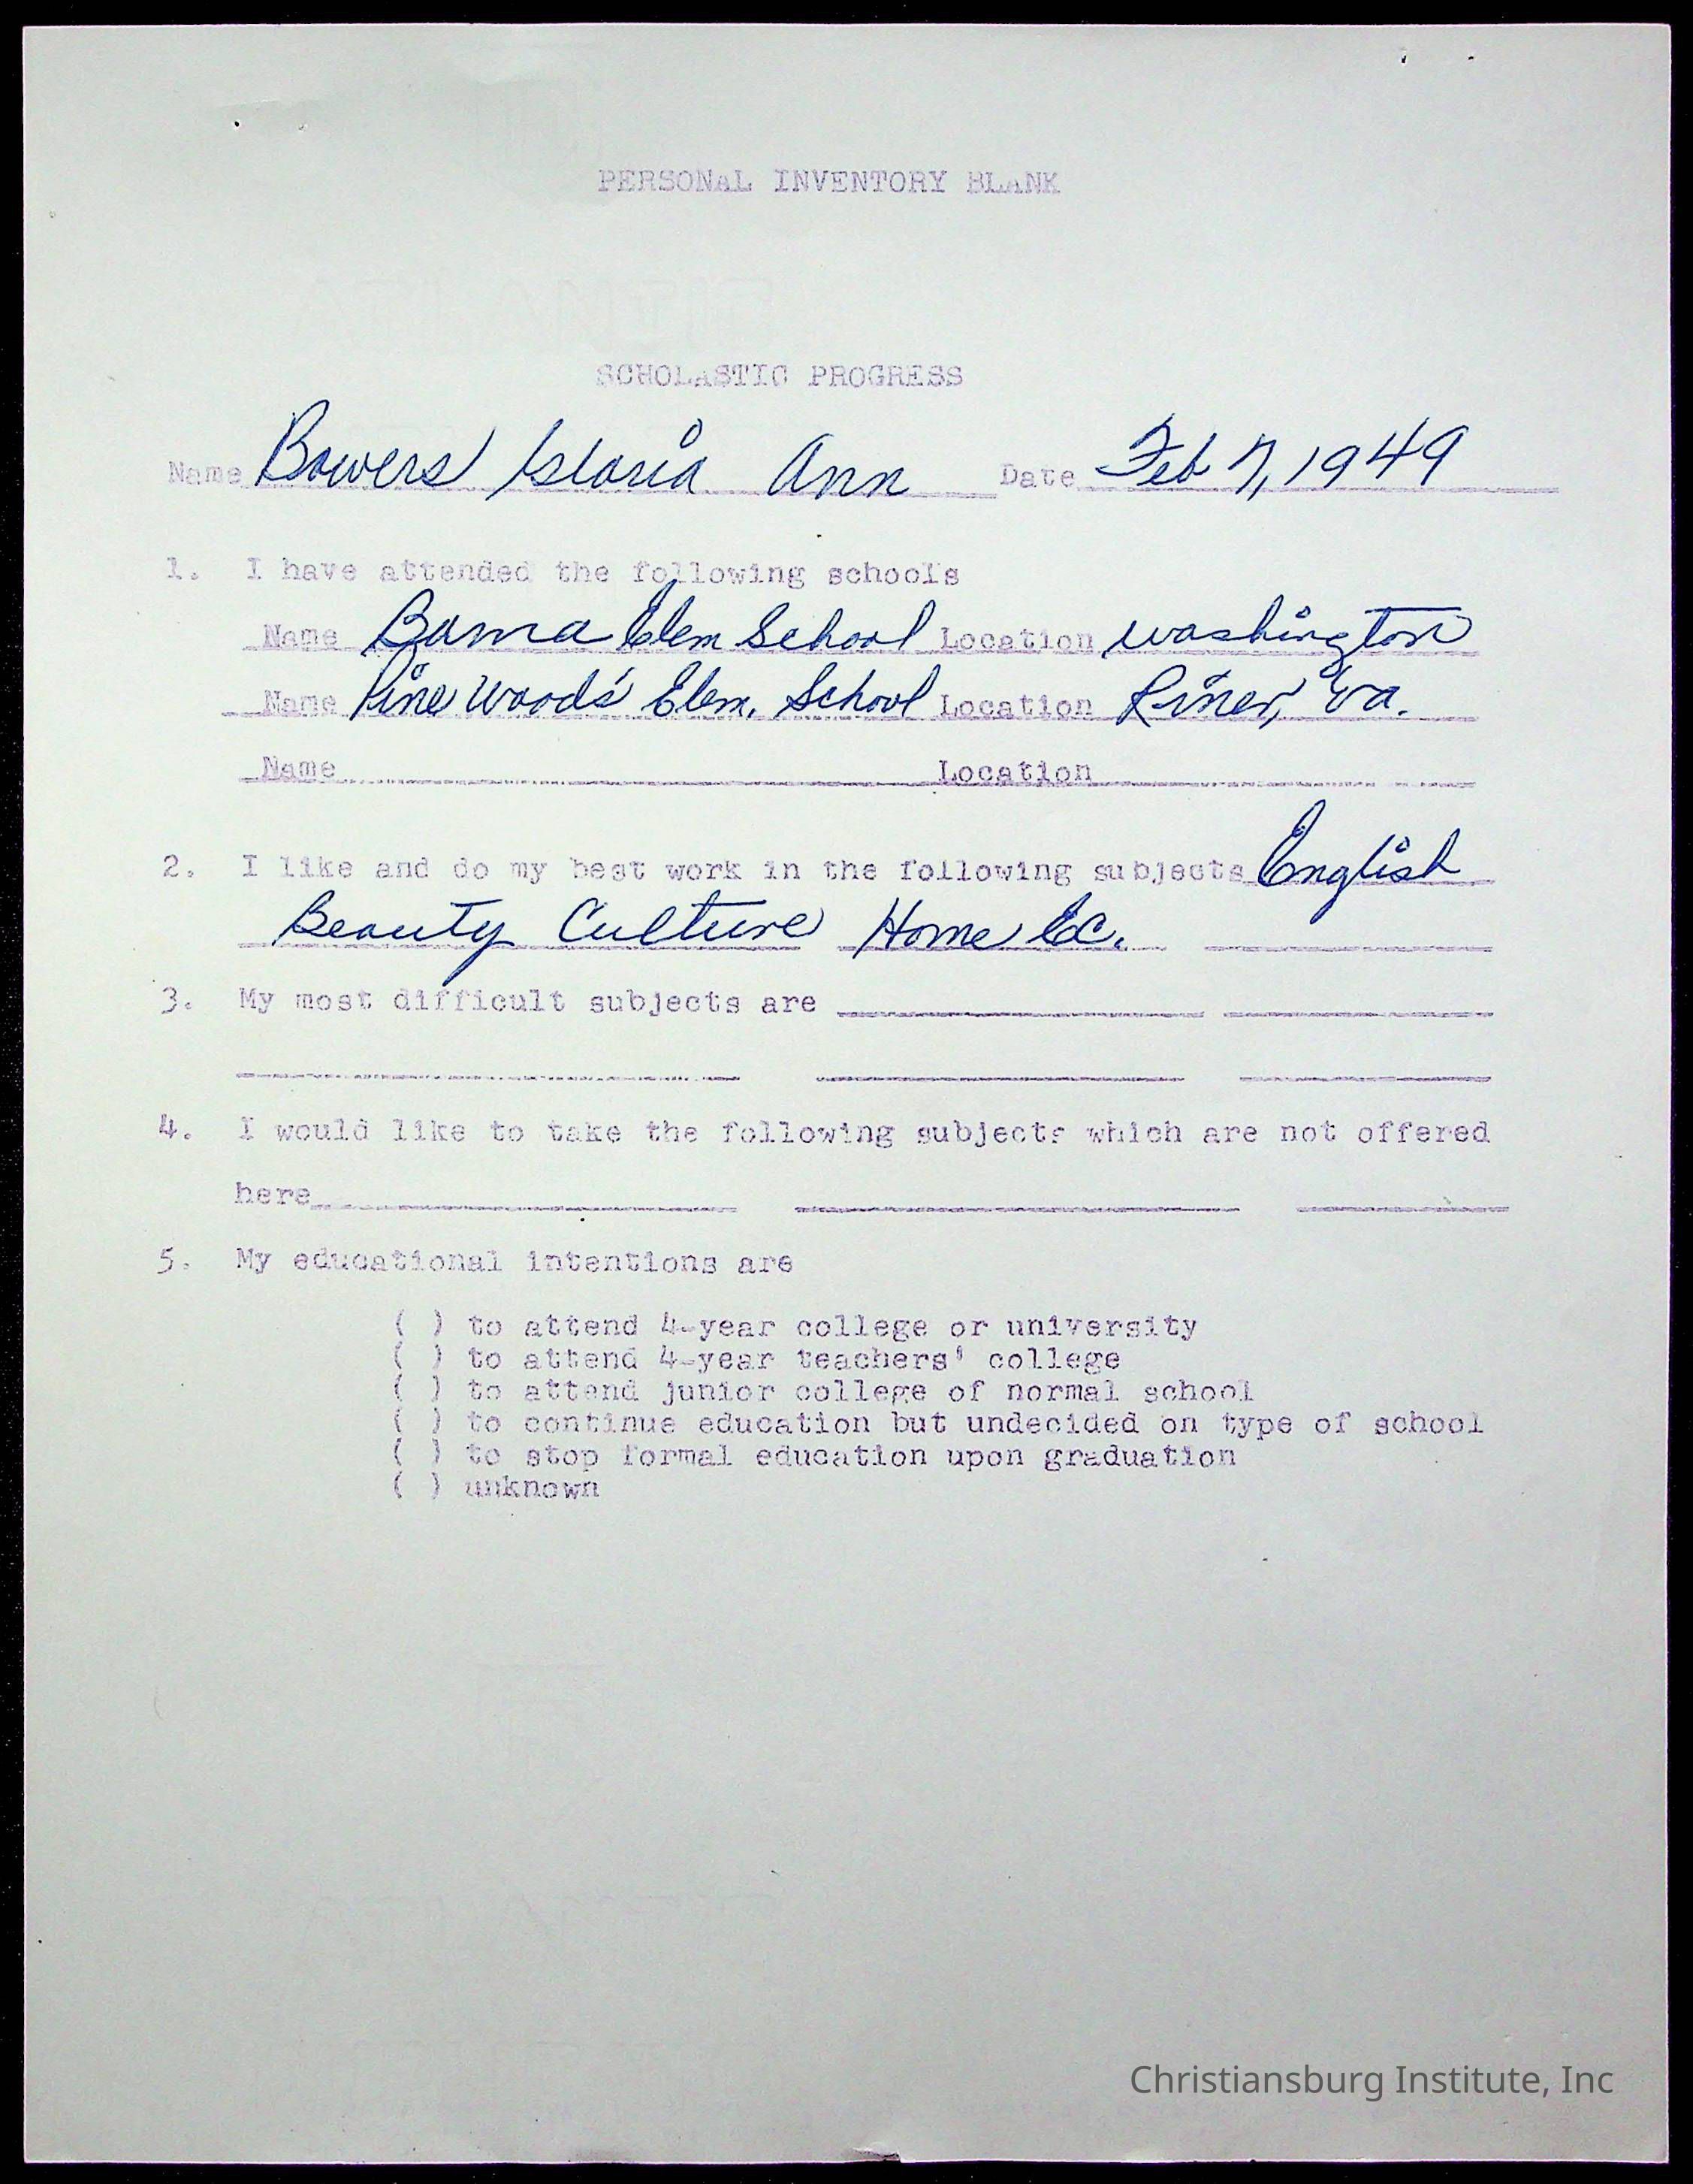 PERSONAL INVENTORY BLANK
SCHOLASTIC PROGRESS
Name Bowers Gloria Ann Date Feb 7, 1949
1. I have attended the following schools
Name Bama Elem School Location Washington
Name Pine Woods Elem. School Location Riner, Va.
Name Location
2. I like and do my best work in the following subjects English
Beauty Culture Home Ec.
3. My most difficult subjects are
4. I would like to take the following subjects which are not offered
here
5. My educational intentions are
( ) to attend 4-year college or university
( ) to attend 4-year teachers' college
( ) to attend junior college of normal school
( ) to continue education but undecided on type of school
( ) to stop formal education upon graduation
( ) unknown
Christiansburg Institute, Inc